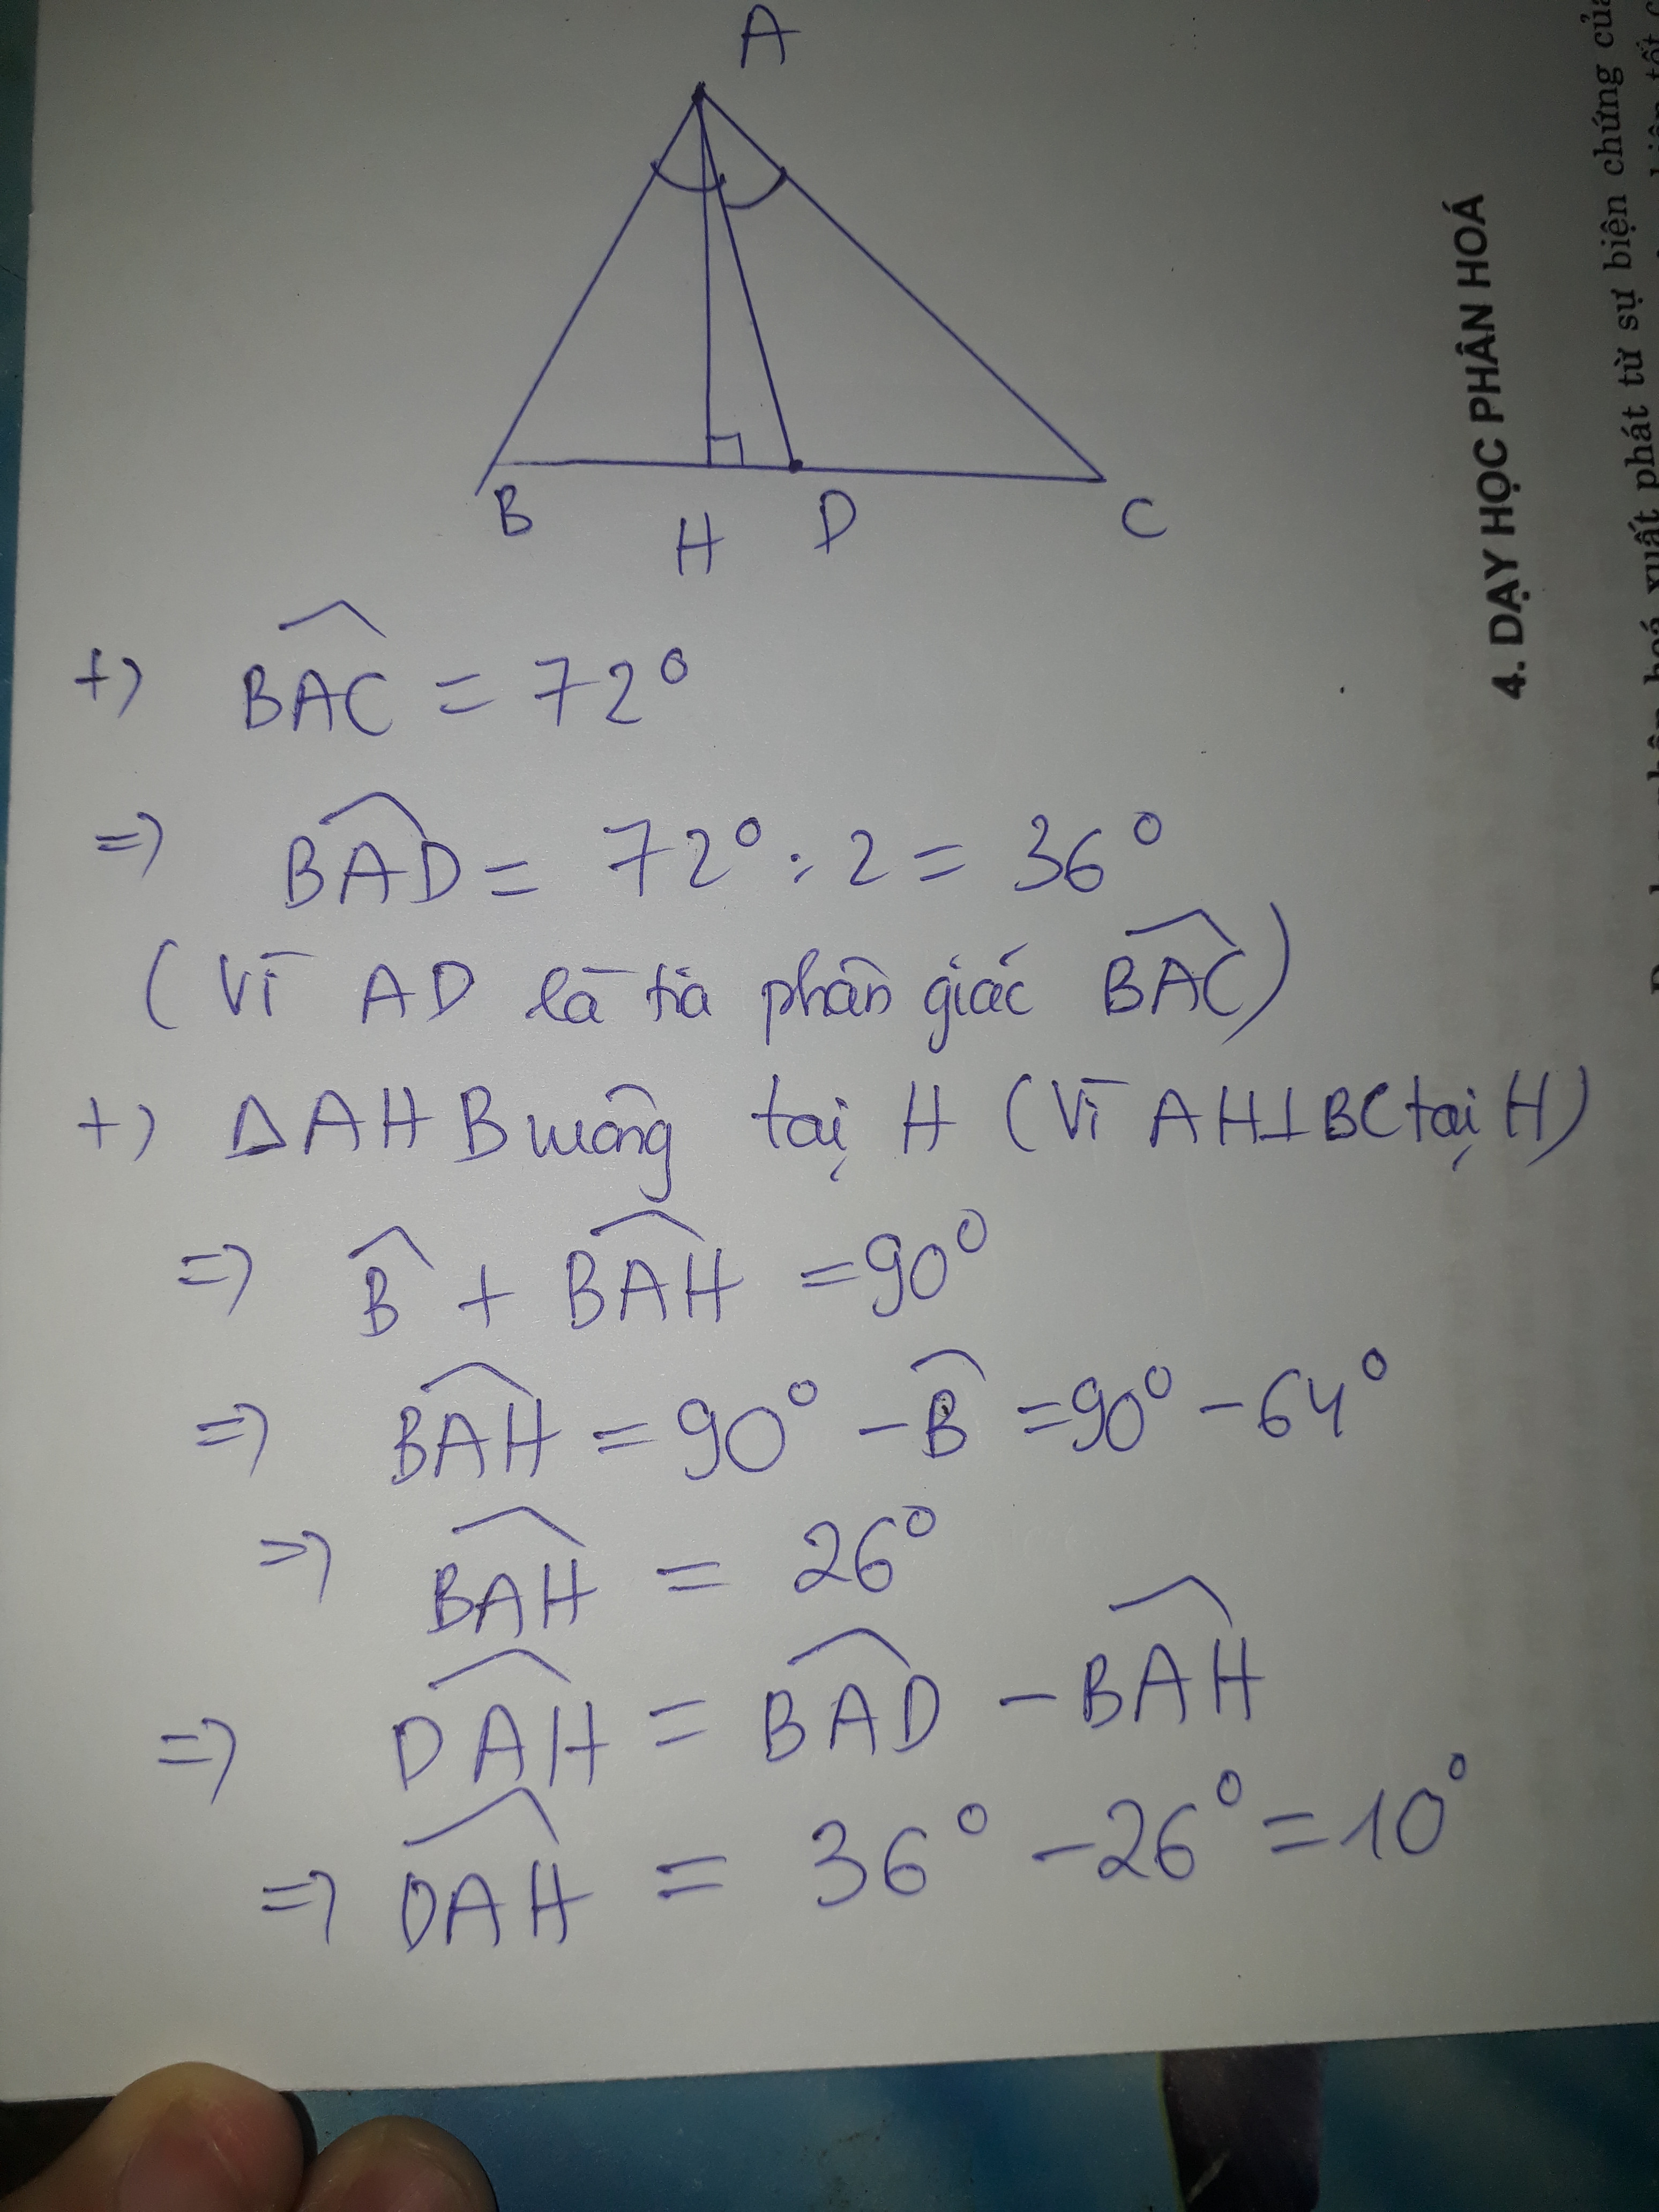 A
B
H
D
C
+) BAC = 72°
=> BAD = 72° : 2 = 36°
(Vì AD là tia phân giác BAC)
+) ΔAHB vuông tại H (Vì AH⊥BC tại H)
=> B + BAH = 90°
=> BAH = 90° - B = 90° - 64°
=> BAH = 26°
=> DAH = BAD - BAH
=> DAH = 36° - 26° = 10°
4. DẠY HỌC PHÂN HOÁ
xuất phát từ sự biện chứng của